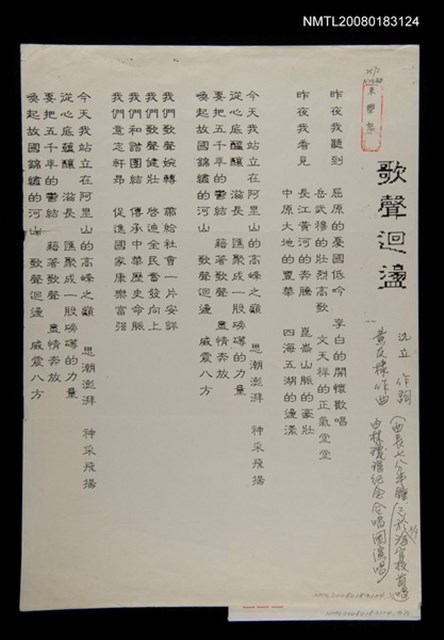 NMTL20080183124
歌聲迴盪
沈立 作詞
黃友棣作曲
由林瓊瑤紀念合唱團演唱
昨夜我聽到 屈原的憂國低吟 李白的開懷歡唱
岳武穆的壯烈高歌 文天祥的正氣堂堂
昨夜我看見 長江黃河的奔騰 崑崙山脈的豪壯
中原大地的豐華 四海五湖的邊漾
今天我站立在阿里山的高峰之巔 思潮澎湃 神采飛揚
從心底蘊釀 滋長 匯聚成一股磅礡的力量
要把五千年的鬱結 藉著歌聲 盡情奔放
喚起故國錦繡的河山 歌聲迴盪 威震八方
我們歌聲婉轉 帶給社會一片安詳
我們歌聲健壯 啟迪全民奮發向上
我們和諧團結 傳承中華歷史命脈
我們意志軒昂 促進國家康樂富強
今天我站立在阿里山的高峰之巔 思潮澎湃 神采飛揚
從心底蘊釀 滋長 匯聚成一股磅礡的力量
要把五千年的鬱結 藉著歌聲 盡情奔放
喚起故國錦繡的河山 歌聲迴盪 威震八方